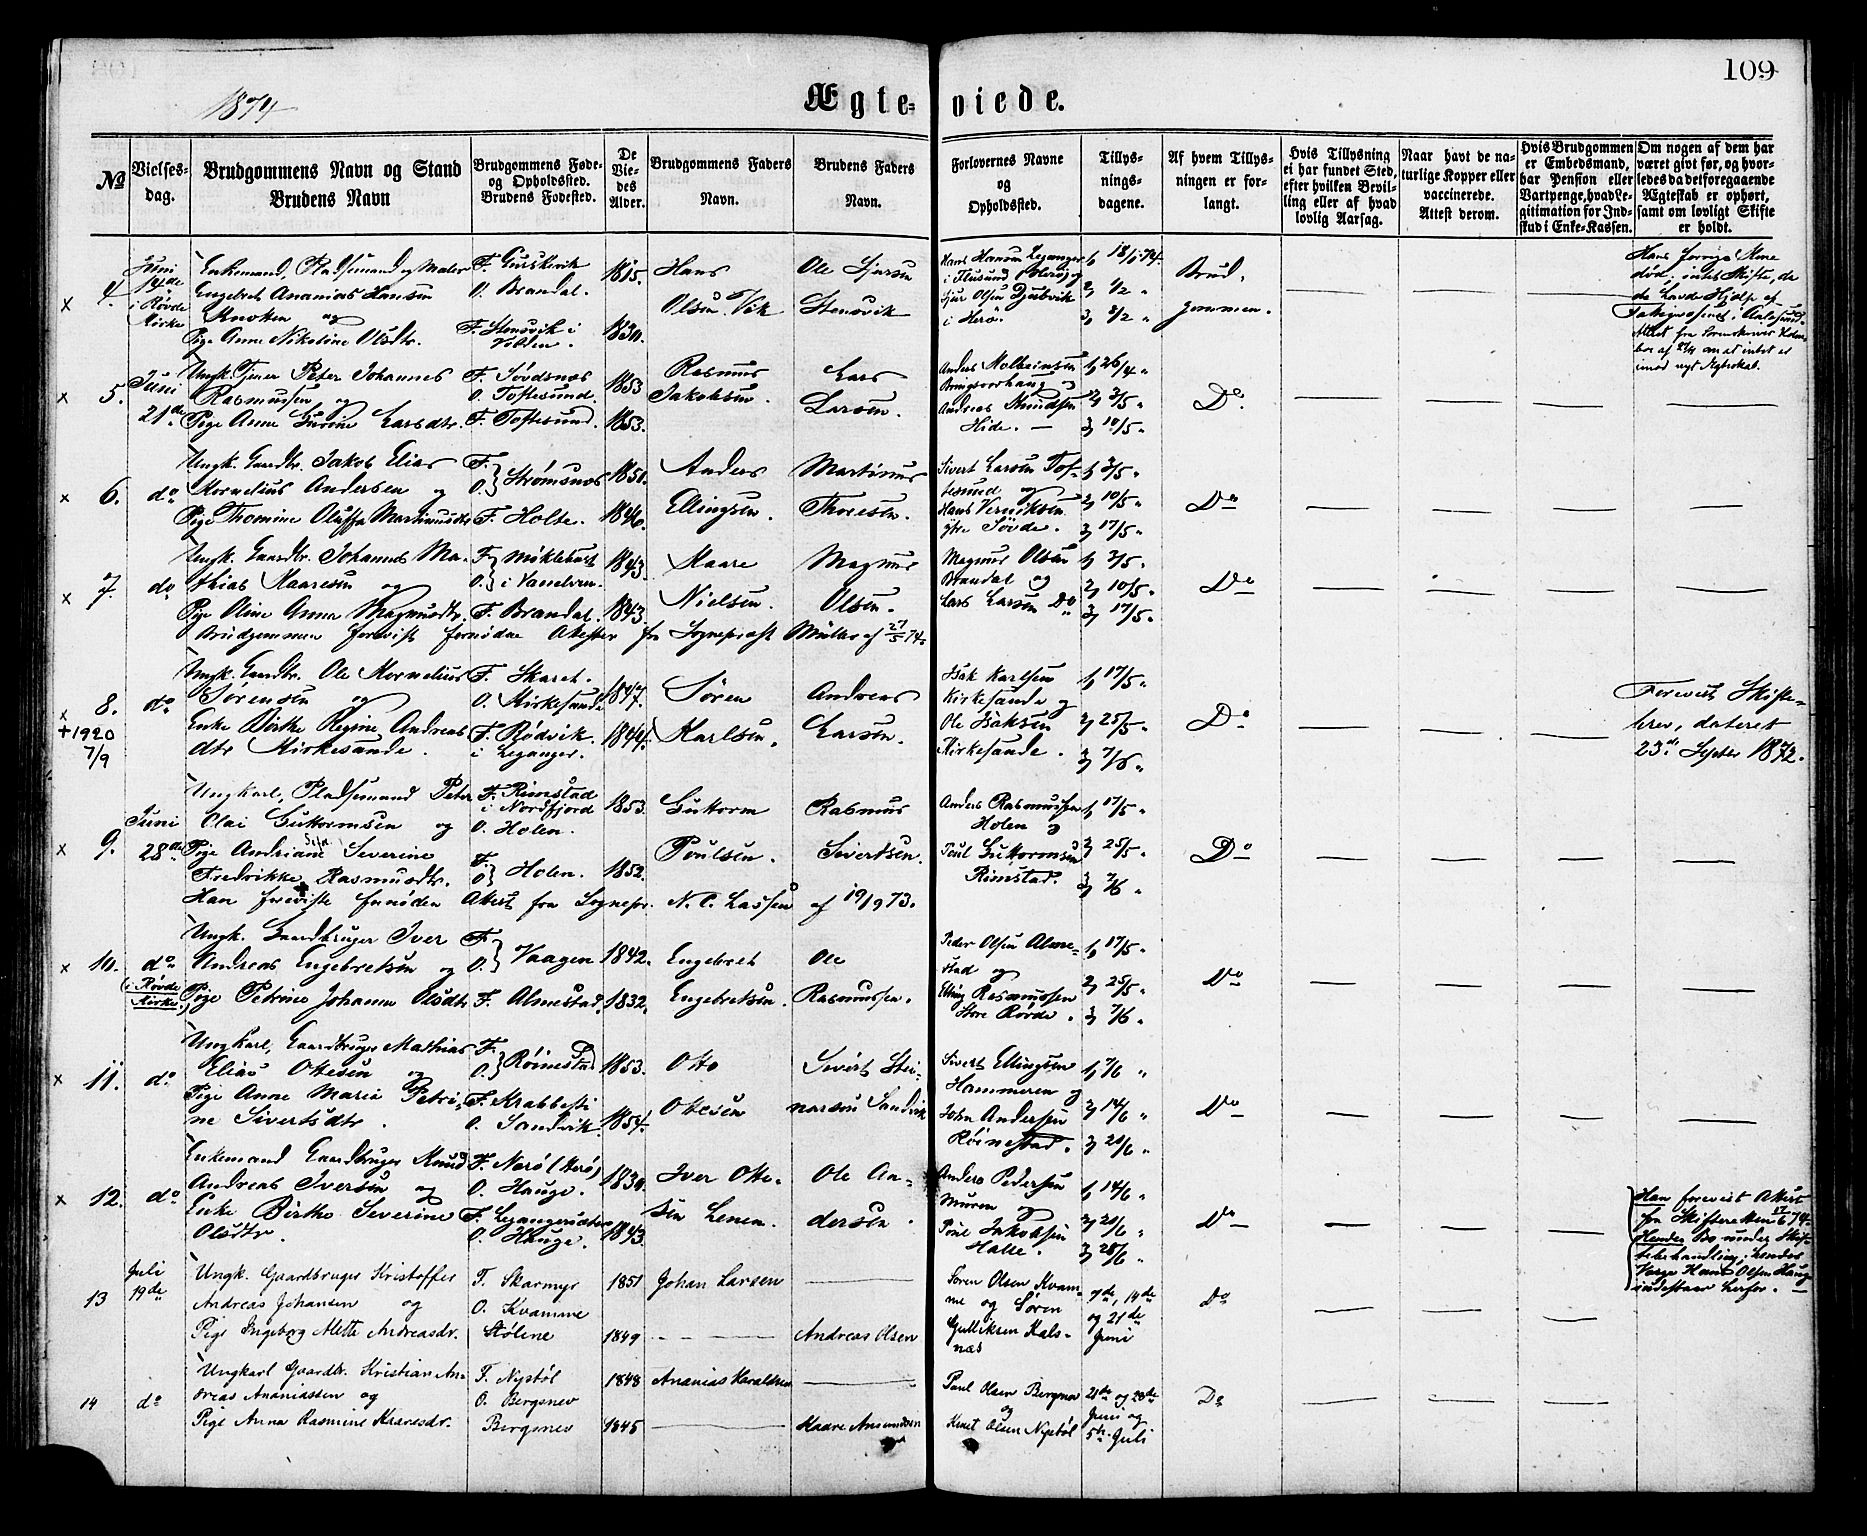 109
1874
Ægteviede.
№
Vielses-
dag.
Brudgommens Navn og Stand
Brudens Navn
Brudgommens Føde-
og Opholdssted.
Brudens Fødested.
De
Vie-
des
Alder.
Brudgommens Faders
Navn.
Brudens Faders
Navn.
Forlovernes Navne
og
Opholdssted.
Tillys-
nings-
dagene.
Af hvem Tillys-
ningen er for-
langt.
Hvis Tillysning
ei har fundet Sted,
efter hvilken Bevil-
ling eller af hvad
lovlig Aarsag.
Naar havt de na-
turlige Kopper eller
vaccinerede.
Attest derom.
Hvis Brudgommen
er Embedsmand,
har Pension eller
Vartpenge, hvad Le-
gitimation for Ind-
skud i Enke-Kassen.
Om nogen af dem har
været givt før, og hvor-
ledes da det foregaaende
Ægteskab er ophørt,
samt om lovligt Skifte
er holdt.
x 4.
Juni
14de
i Røvde
Kirke
Enkemand, Pladsmand og Maler
Engebret Ananias Hansen
Knotten og
Pige Anne Nikoline Olsdtr.
F. Gurskevik
O. Brandal.
F. Stensvik i
Volden.
1815.
1830.
Hans
Olsen Vik
Ole Sjursen
Stensvik
Hans Hansen Leganger
i Flusund Herø og
Sjur Olsen Djubvik
i Herø.
1) 18/1 74.
2) 1/2 "
3) 8/2 "
Brud-
gommen.
Hans forrige Kone
død. intet Skifte, da
de havde Hjelp af
x 5.
Juni
21de
Ungk. Tjener Peter Johannes
Rasmussen og
Pige Anne Gurine Larsdtr.
F. Søvdsnæs
O. Toftesund.
F. Toftesund.
1853
1853.
Rasmus
Jakobsen.
Lars
Larsen.
Andreas Knudsen
Hide. —
1) 26/4 "
2) 3/5 "
3) 10/5 "
Do.
x 6.
do
Ungk. Gaardbr. Jakob Elias
Kornelius Andersen og
Pige Thomine Oluffa Martinusdtr
F.
O. } Strømsnes
F. Holte.
1850.
1846.
Anders
Ellingsen.
Martinus
Thoresen.
Sivert Larsen Tof-
tesund og
Hans Henriksen
ytre Søvde.
1) 3/5 "
2) 10/5 "
3) 17/5 "
Do
x 7.
do
Ungk. Gaardbr. Johannes Ma-
thias Kaaresen og
Pige Oline Anna Magnusdtr.
F. } Møklebust
O. } i Vanelven.
F. Brandal.
1843.
1843.
Kaare
Nielsen.
Magnus
Olsen.
Magnus Olsen
Brandal og
Lars Larsen Do
1) 3/5 "
2) 10/5 "
3) 17/5 "
Do
Brudgommen foreviste fornødne Attester fra Sognepræst Müller af 27/5 74.
x 8.
+1920
7/9
do
Ungk. Gaardbr. Ole Kornelius
Sørensen og
Enke Birthe Regine Andreas
dtr Kirkesande.
F. Skaret.
O. Kirkesande
F. Rødvik.
i Leganger.
1847.
1844.
Søren
Karlsen.
Andreas
Larsen.
Isak Karlsen
Kirkesande og
Ole Isaksen
Kirkesande.
1) 17/5 "
2) 25/5 "
3) 7/6 "
Do
Forevist Skifte-
brev, dateret
23de Septbr 1872.
x 9.
Juni
28de
Ungkarl, Pladsemand Peter
Olai Guttormsen og
Pige Andriane Severine
Fredrikke Rasmusdtr.
F. Rimstad
i Nordfjord
O. Holen.
F.
O. } Holen.
1853.
1852.
Guttorm
Poulsen.
Rasmus
Sivertsen.
Anders Rasmussen
Holen og
Poul Guttormsen
Rimstad.
1) 17/5 "
2) 25/5 "
3) 7/6 "
Do
Han foreviste fornøden Attest fra Sognepr. N. C. Lassen af 19/9 73.
x 10.
do
(i Røvde
Kirke)
Ungk. Gaardbruger Iver
Andreas Engebretsen og
Pige Petrine Johanne Olsdtr
F.
O. } Vaagen
F. Almestad.
1842.
1832.
Engebret
Engebretsen.
Ole
Rasmussen.
Peder Olsen Alme-
stad og
Elling Rasmussen
Store Røvde.
1) 17/5 "
2) 25/5 "
3) 7/6 "
Do
x 11.
do
Ungkarl, Gaardbruger Mathias
Elias Ottesen og
Pige Anne Marie Petri-
ne Sivertsdtr.
F.
O. } Røinestad
F. Krabbesti
O. Sandvik.
1853.
1854.
Otto
Ottesen
Sivert Stei-
narsen Sandvik
Sivert Ellingsen
Hammeren og
John Andersen
Røinestad.
1) 7/6 "
2) 14/6 "
3) 21/6 "
Do
x 12.
do
Enkemand Gaardbruger Knud
Andreas Iversen og
Enke Birthe Severine
Olsdtr.
F. Nærø (Herø)
O. Hauge.
F. Legangersæter
O. Hauge.
1830.
1843.
Iver Otte-
sen Lenen.
Ole An-
dersen.
Anders Pedersen
Muren og
Poul Jakobsen
Halle.
1) 14/6 "
2) 21/6 "
3) 28/6 "
Do
Han forevist Attest
fra Skifteretten 17/6 74.
Hendes Bo under Skif-
tebehandling; hendes
Verge Hans Olsen Haug
indestaar herfor. —
13
Juli
19de
Ungk. Gaardbruger Kristoffer
Andreas Johansen og
Pige Ingeborg Alette Andreasdr.
F. Skarmyr
O. Kvamme
Stølene
1851
1849
Johan Larsen
Andreas Olsen
Søren Olsen Kvam-
me og Søren
Gulliksen Kals-
næs
7de, 14de
og 21de
Juni
Do
14
do
Ungkarl Gaardbr. Kristian An-
dreas Ananiassen og
Pige Anna Rasmine Kaaresdr.
F. Nystøl
O. Bergsnev
Bergsnev
1848
1845
Ananias Haraldsen
Kaare Amundsen
Paul Olsen Bergsnev
og
Knut Olsen Nystøl
21de og 28de
Juni og
5te Juli
Do